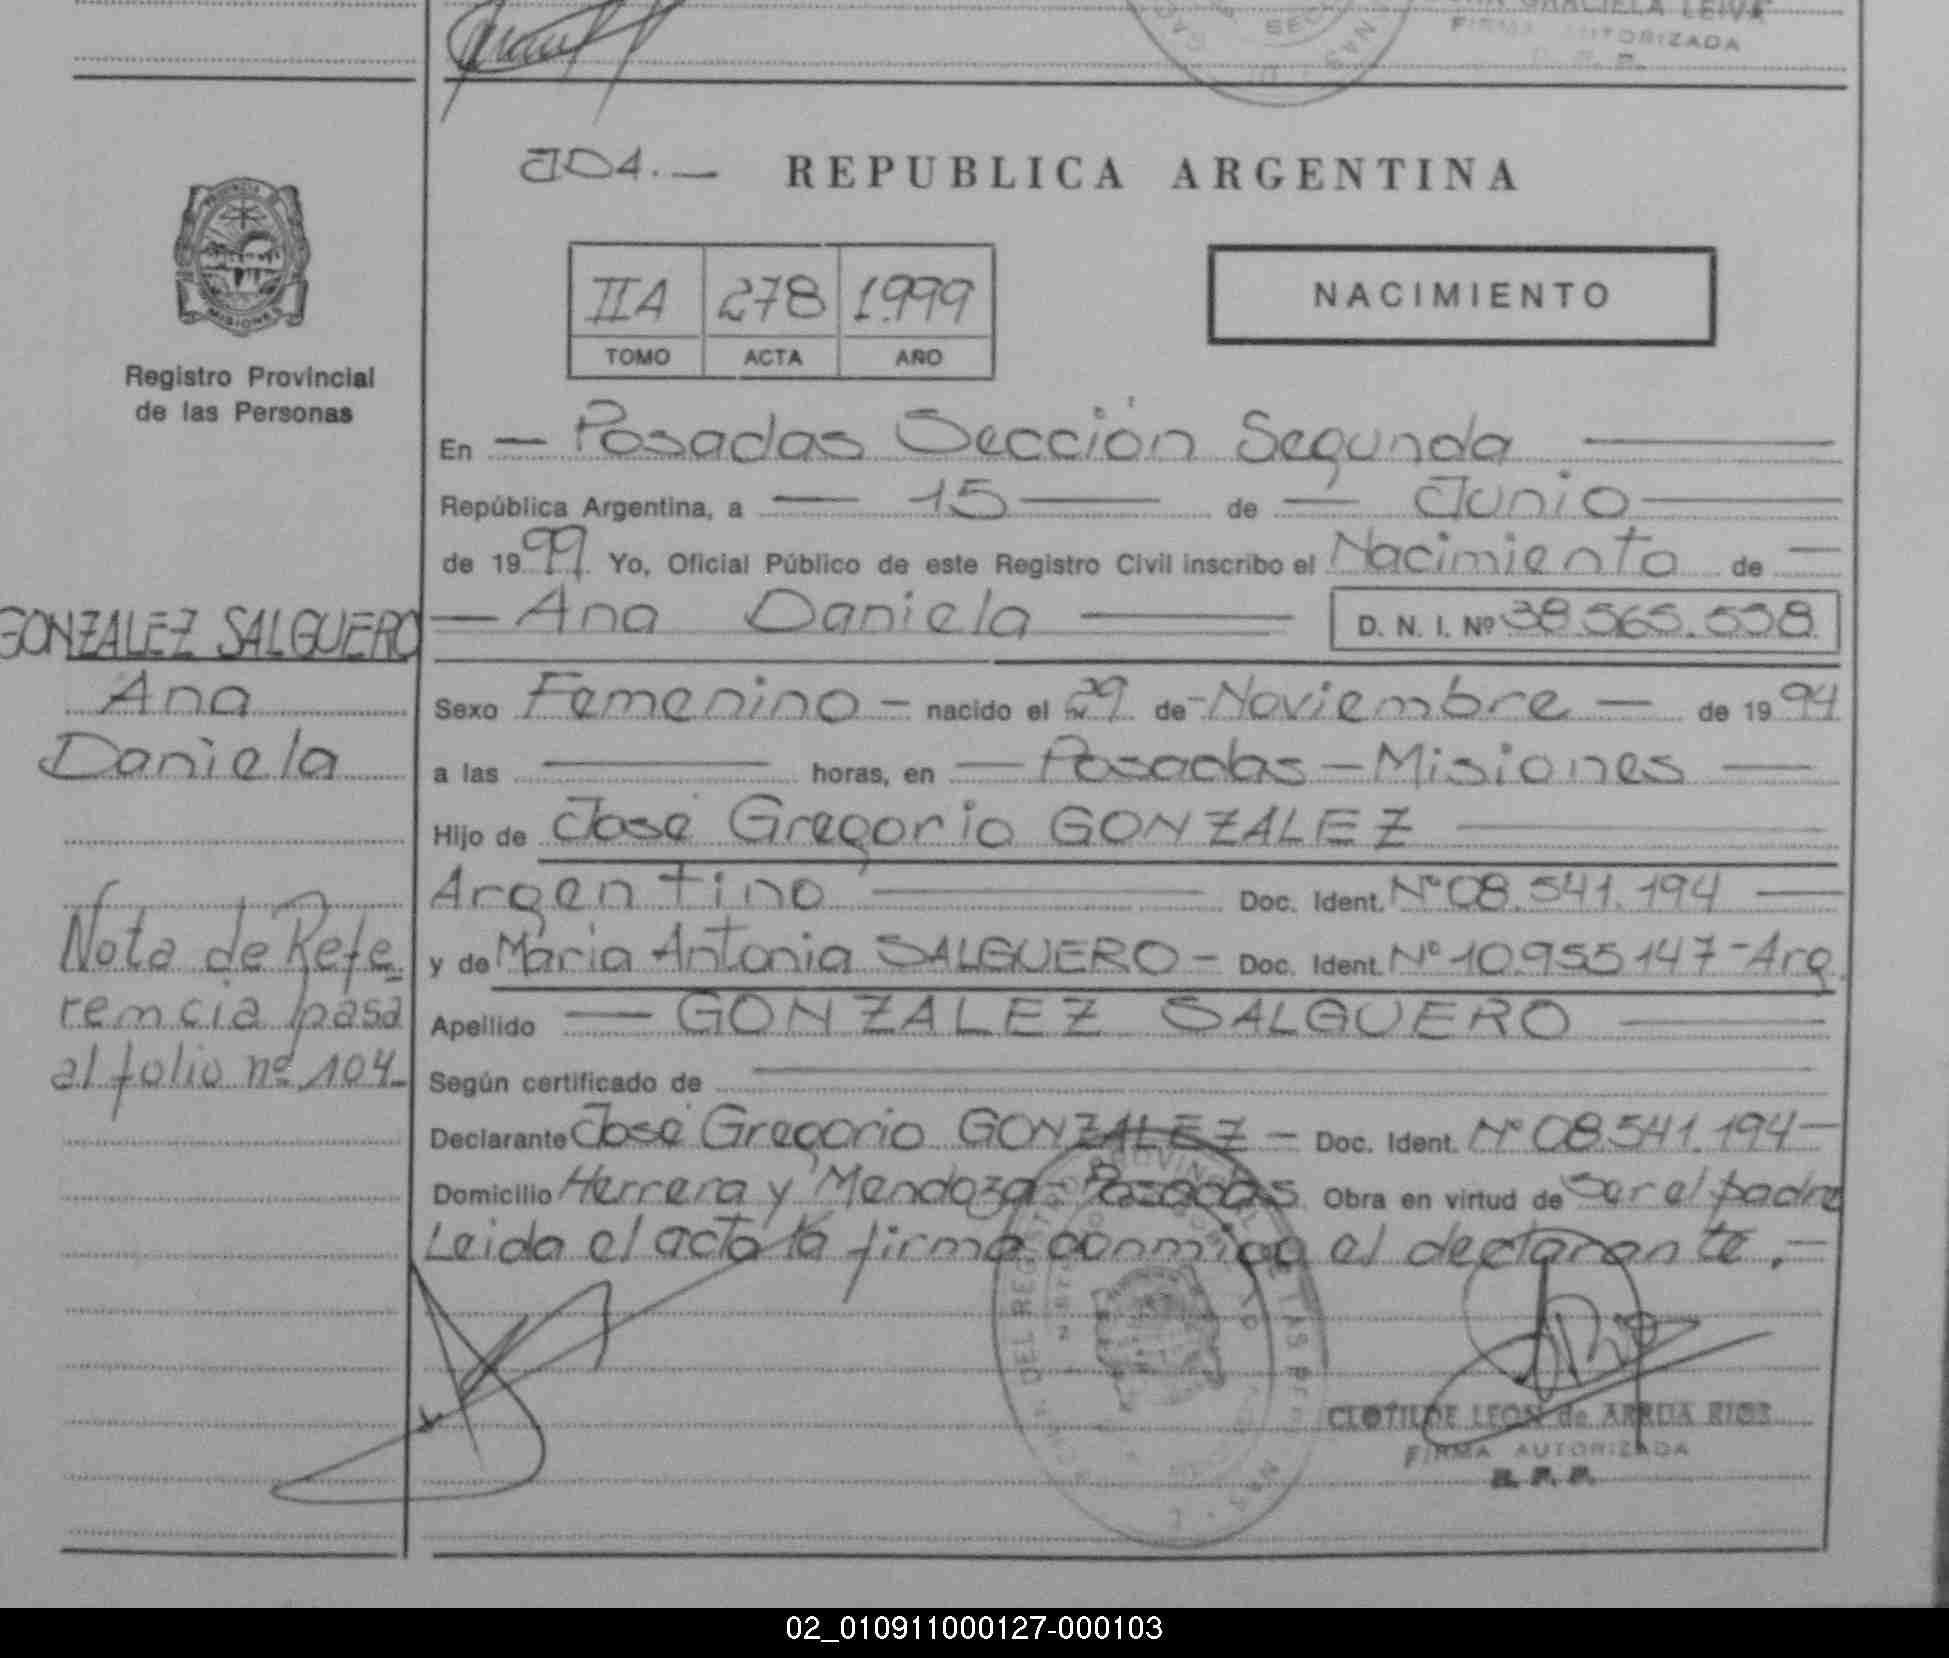 GRACIELA LEIVA
FIRMA AUTORIZADA
104.—
REPUBLICA ARGENTINA
PROVINCIA
MISIONES
IIA 278 1.999
TOMO ACTA AÑO
NACIMIENTO
Registro Provincial
de las Personas
En — Posadas Sección Segunda —
República Argentina, a — 15 — de — Junio —
de 1999. Yo, Oficial Público de este Registro Civil inscribo el Nacimiento de —
— Ana Daniela — D. N. I. Nº 38.565.558.
GONZALEZ SALGUERO
Ana
Daniela
Sexo Femenino — nacido el 29 de - Noviembre — de 1994
a las — horas, en — Posadas - Misiones —
Hijo de José Gregorio GONZALEZ —
Argentino — Doc. Ident. Nº 08.541.194 —
y de Maria Antonia SALGUERO - Doc. Ident. Nº 10.955147 - Arg.
Apellido — GONZALEZ SALGUERO —
Según certificado de —
Declarante José Gregorio GONZALEZ - Doc. Ident. Nº 08.541.194 —
Domicilio Herrera y Mendoza - Posadas. Obra en virtud de Ser el padre
Leida el acta la firma conmigo el declarante.-
Nota de Refe-
rencia pasa
al folio nº 104-
CLOTILDE LEON de ARRUA RIOS
FIRMA AUTORIZADA
R. P. P.
02_010911000127-000103